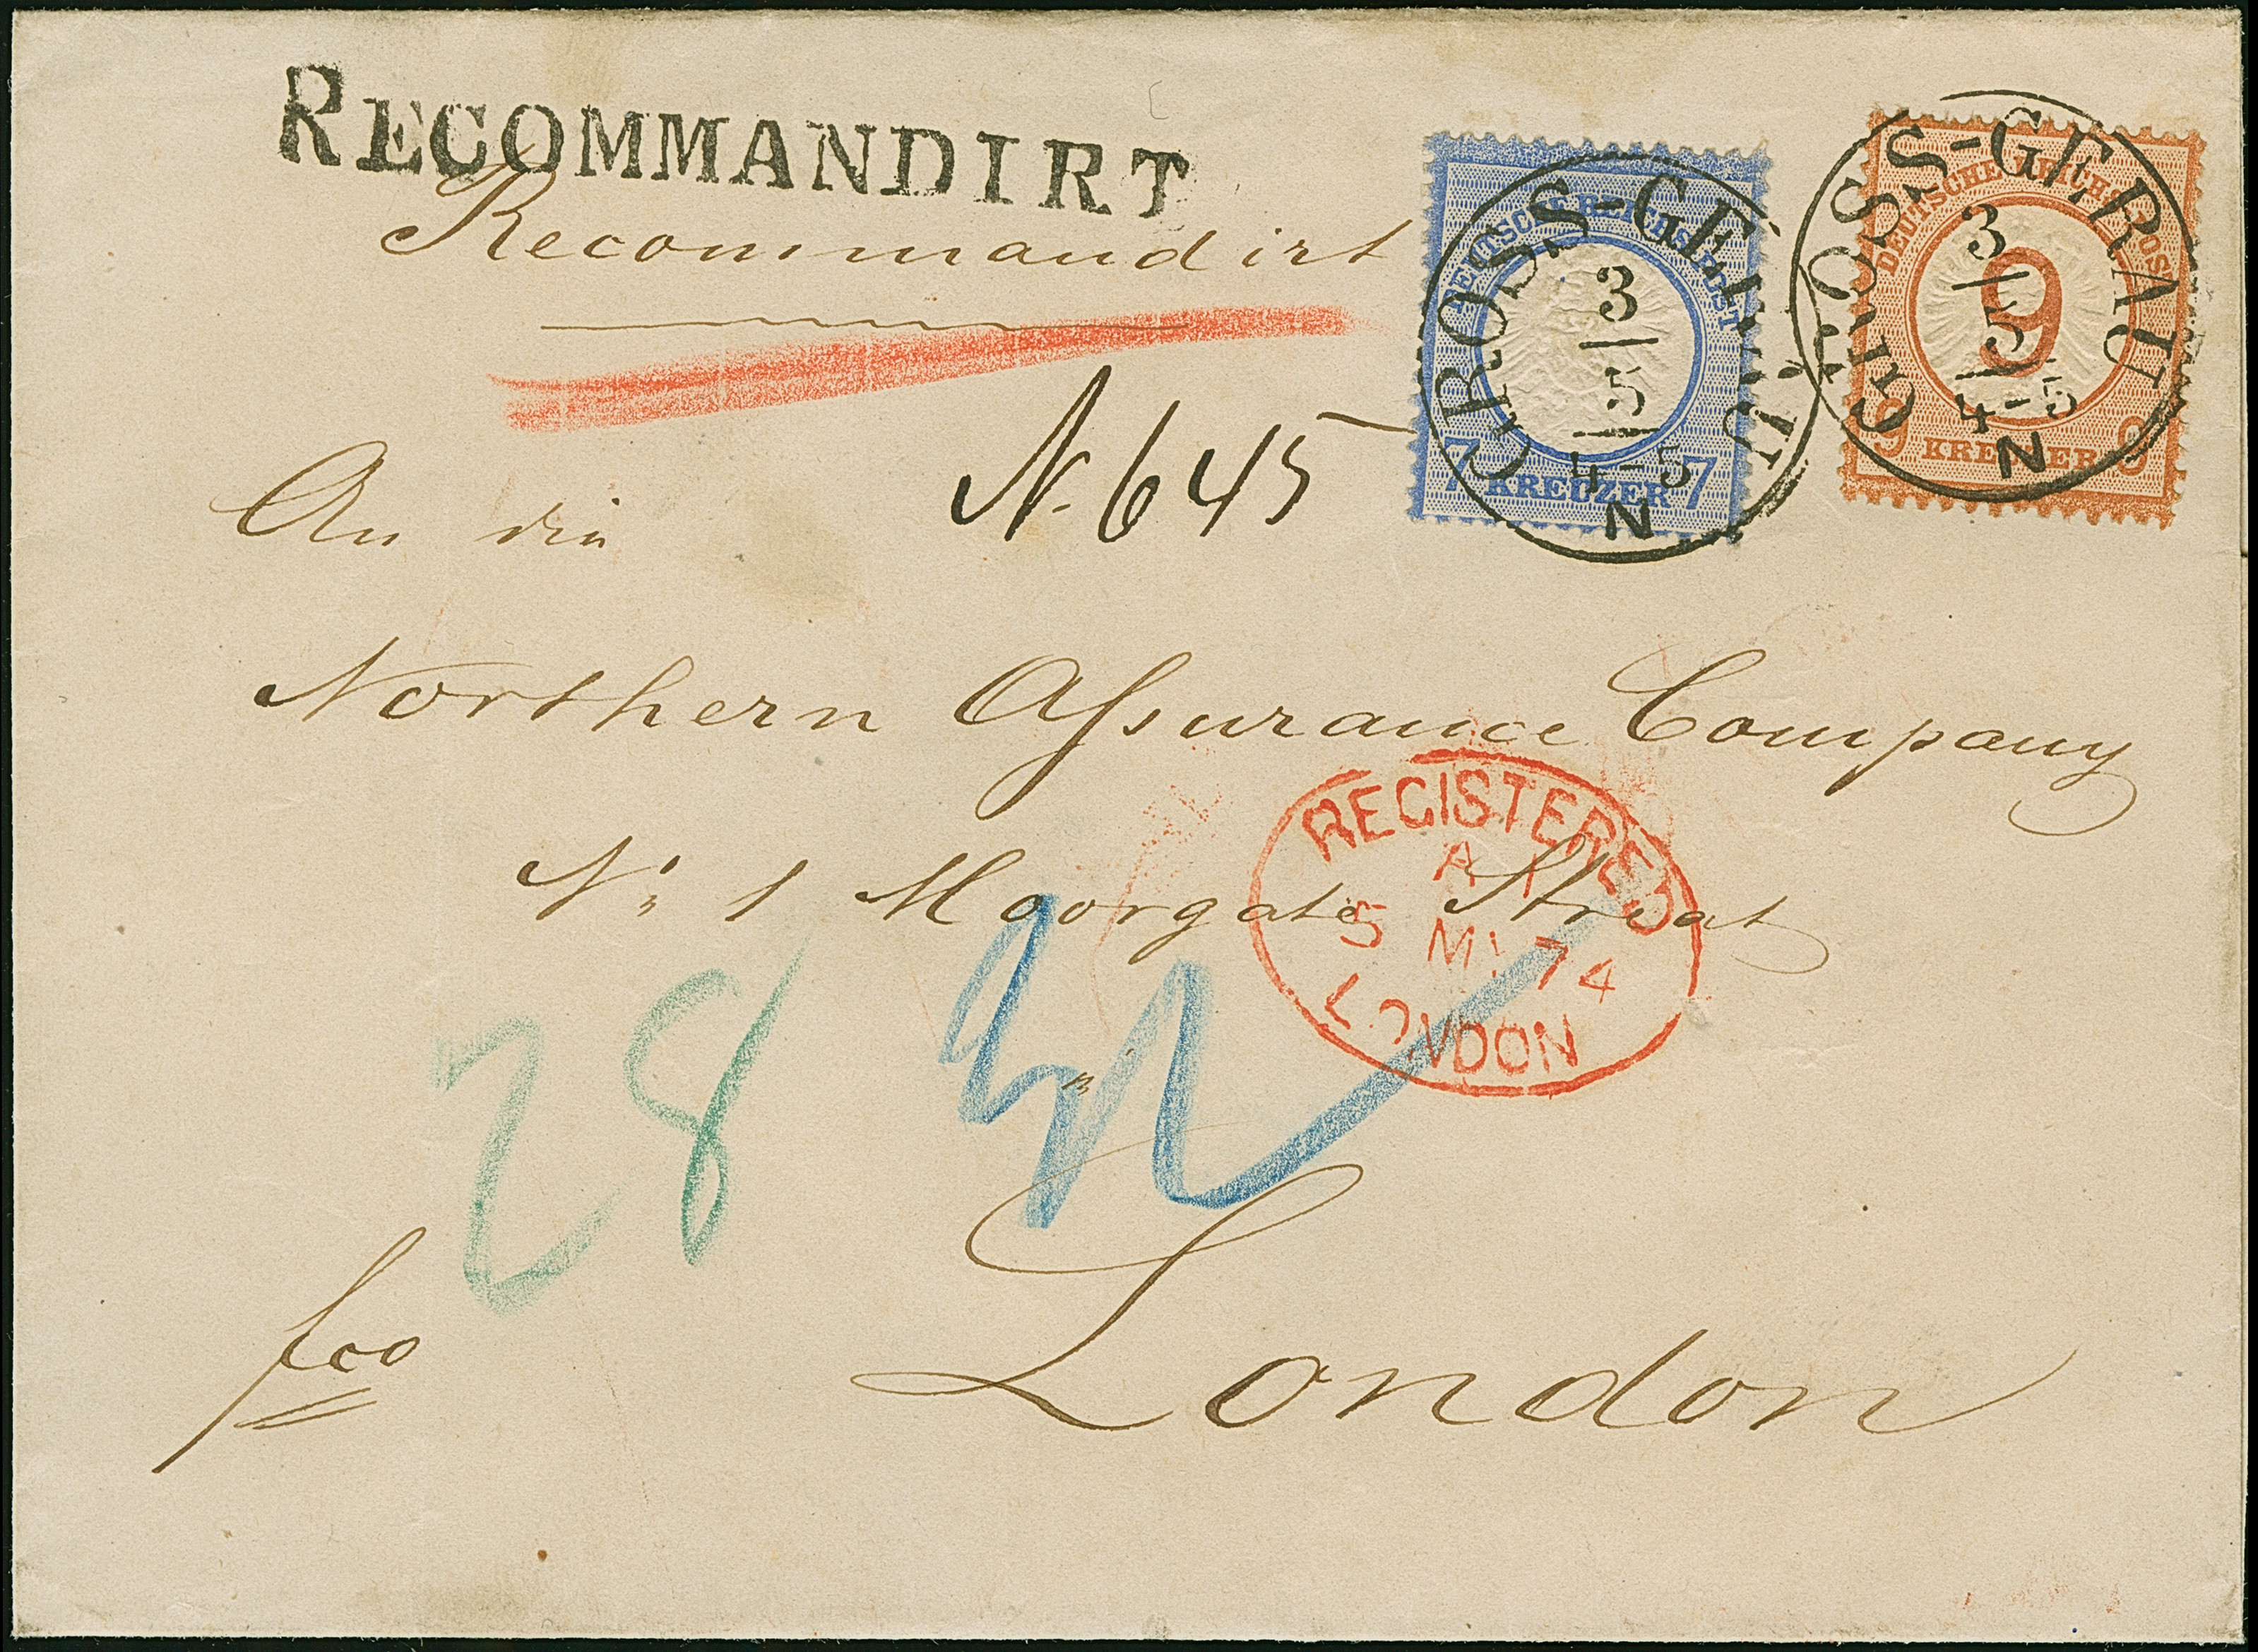 RECOMMANDIRT
Recommandirt
DEUTSCHE REICHS-POST
7 KREUZER 7
GROSS-GERAU
3
5
4-5
N
DEUTSCHE REICHS-POST
9
9 KREUZER 9
GROSS-GERAU
3
5
4-5
N
An die
N. 645
Northern Aſsurance Company
No 1 Moorgate Street
REGISTERED
A
5 MY 74
LONDON
28
fco
London